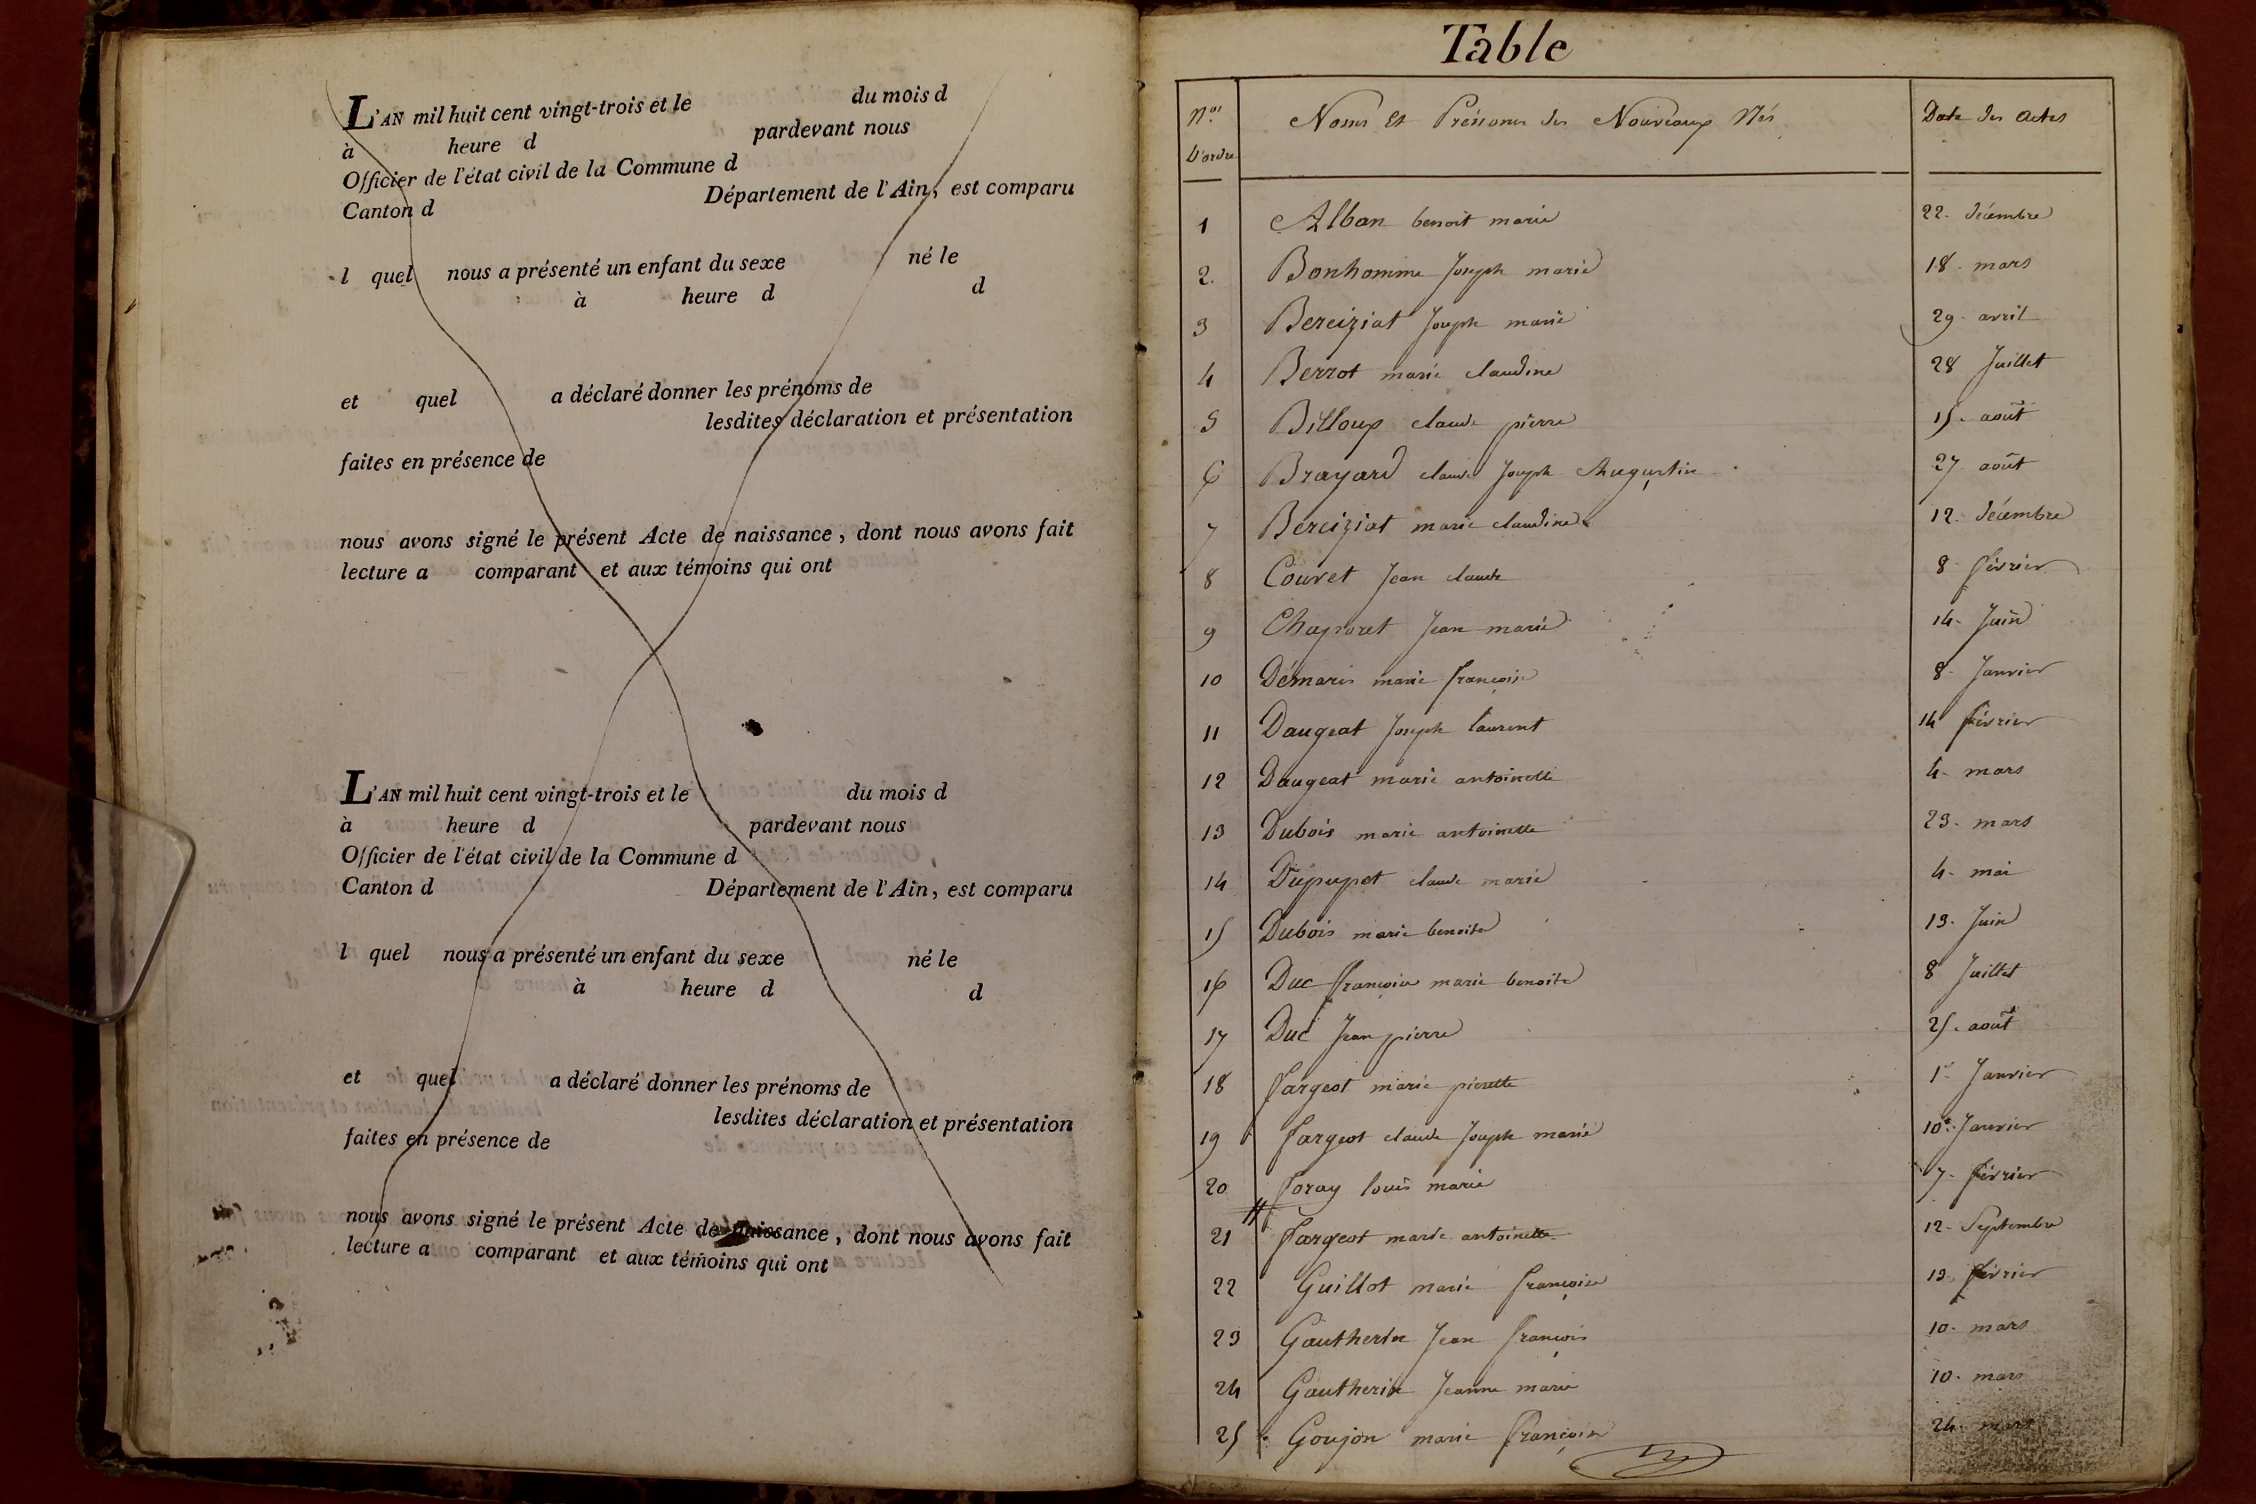 L'AN mil huit cent vingt-trois et le du mois d
à heure d pardevant nous
Officier de l'état civil de la Commune d
Canton d Département de l'Ain, est comparu
l quel nous a présenté un enfant du sexe né le
à heure d d
et quel a déclaré donner les prénoms de
lesdites déclaration et présentation
faites en présence de
nous avons signé le présent Acte de naissance, dont nous avons fait
lecture a comparant et aux témoins qui ont
L'AN mil huit cent vingt-trois et le du mois d
à heure d pardevant nous
Officier de l'état civil de la Commune d
Canton d Département de l'Ain, est comparu
l quel nous a présenté un enfant du sexe né le
à heure d d
et quel a déclaré donner les prénoms de
lesdites déclaration et présentation
faites en présence de
nous avons signé le présent Acte de naissance, dont nous avons fait
lecture a comparant et aux témoins qui ont
Table
Nos D'ordre Noms Et Prénoms des Nouveaux Nés Date des actes
1 Alban benoit marie 22. décembre
2. Bonhomme Joseph marie 18. mars
3 Bereiziat Joseph marie 29. avril
4 Berrot marie claudine 28 Juillet
5 Billoux claude pierre 15. août
6 Brayard claude Joseph Augustin 27. août
7 Bereiziat marie claudine 12. décembre
8 Couvet Jean claude 8. février
9 Chaproret Jean marie 14. Juin
10 Démaris marie françoise 8. Janvier
11 Daugeat Joseph laurent 14 février
12 Daugeat marie antoinette 4. mars
13 Dubois marie antoinette 23. mars
14 Dupupet claude marie 4. mai
15 Dubois marie benoite 13. Juin
16 Duc françoise marie benoite 8 Juillet
17 Duc Jean pierre 25. août
18 fargeot marie pierrette 1er Janvier
19 fargeot claude Joseph marie 10e. Janvier
20 foray louis marie 7. février
21 fargeot marie antoinette 12. Septembre
22 Guillot marie françoise 13. février
23 Gautherin Jean françois 10. mars
24 Gautherin Jeanne marie 10. mars
25 Goujon marie françoise 24. mars